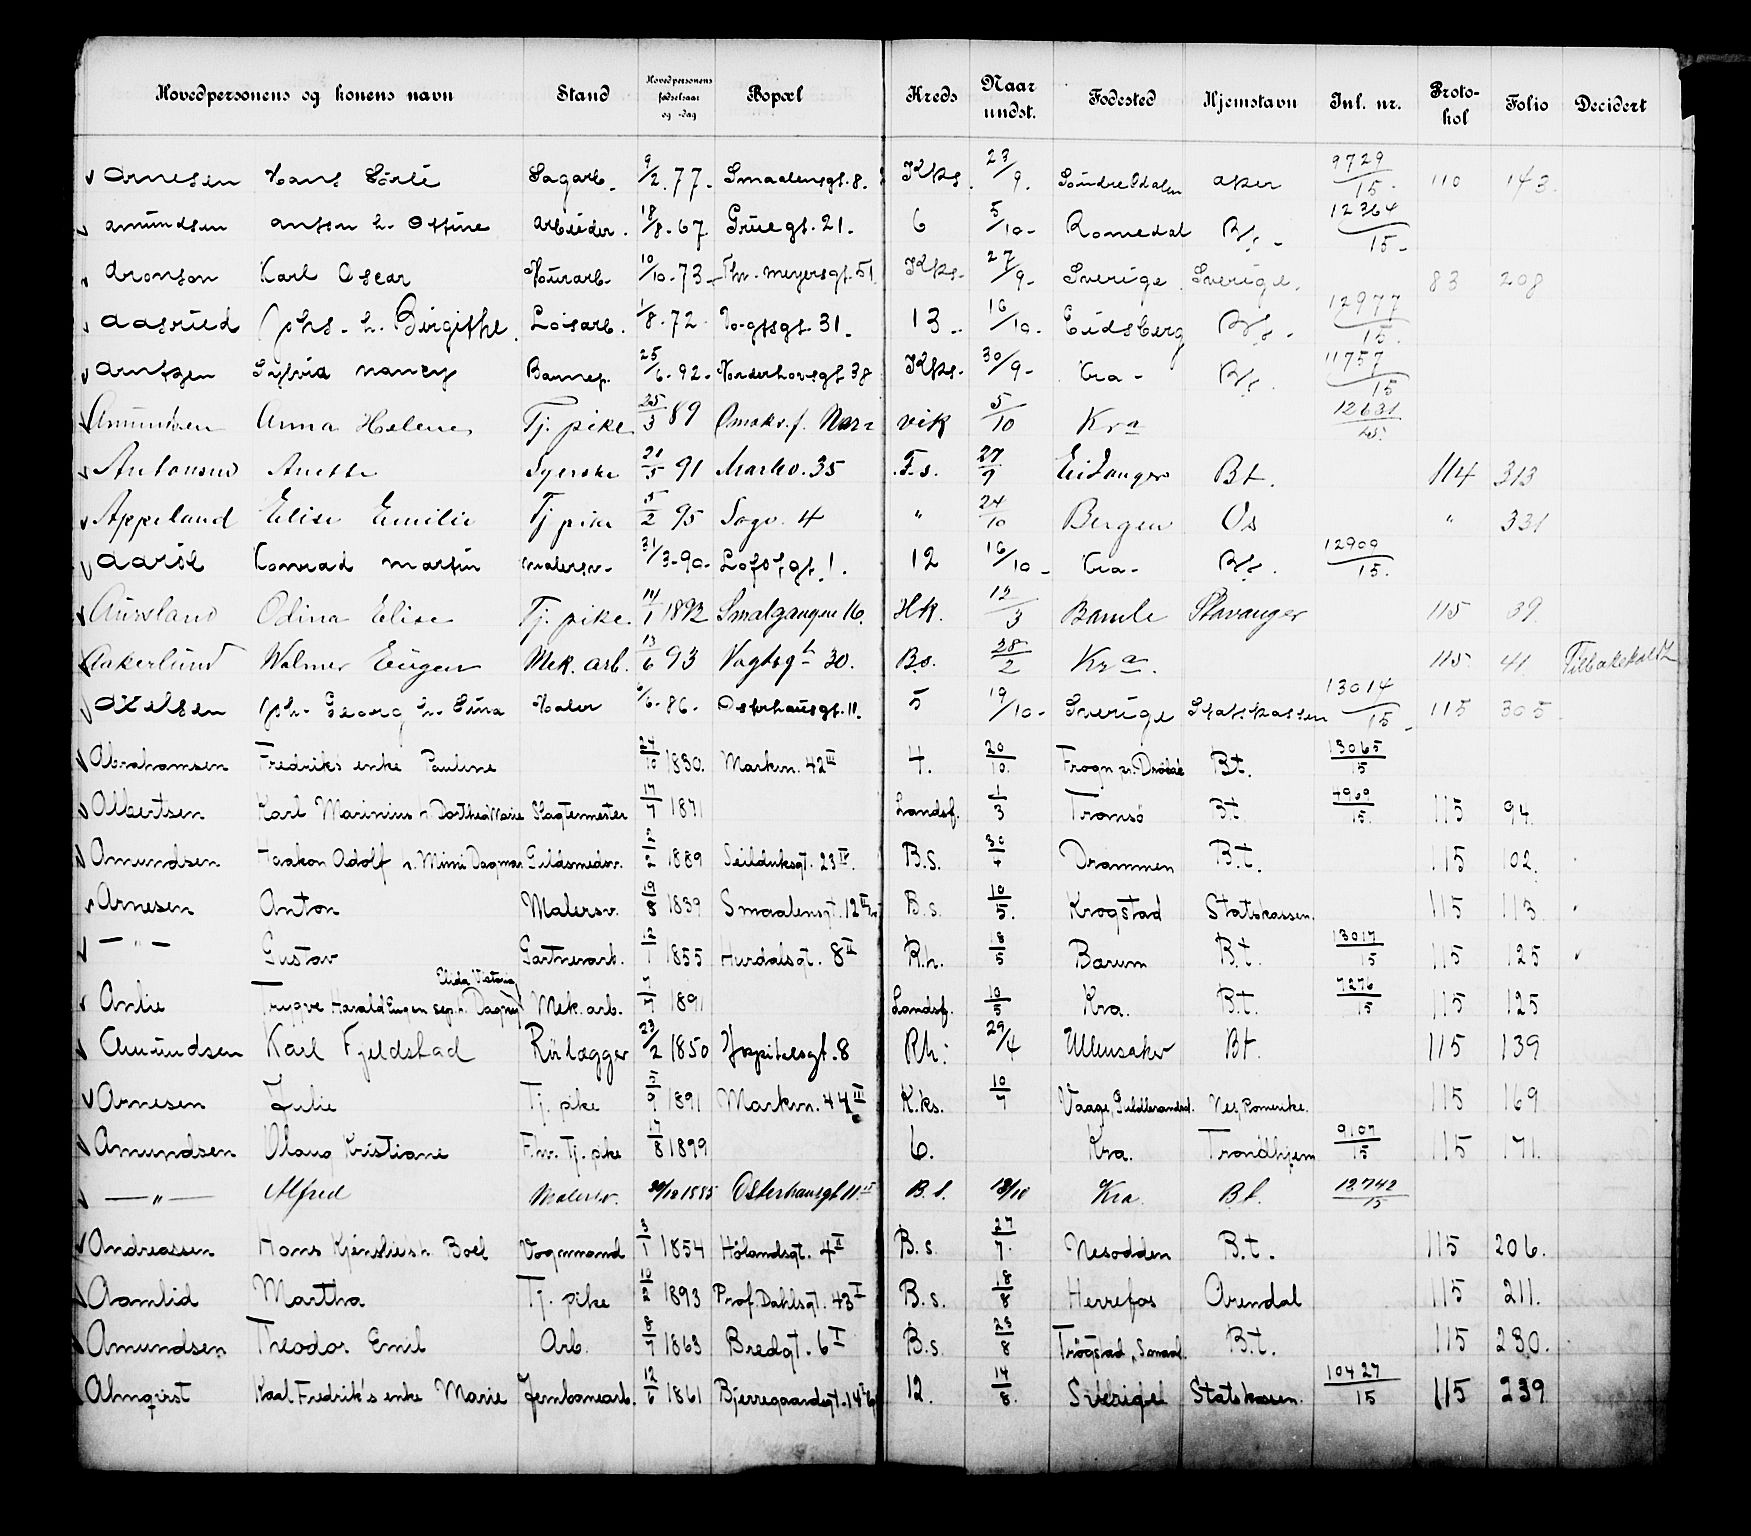 Hovedpersonens og konens navn Stand Hovedpersonens fødselsaar og -dag Bopæl Kreds Naar undst. Fødested Hjemstavn Inl. nr. Proto-kol Folio Decidert
Arnesen Hans Sagarb. 9/2 77. Smaalensgt. 8. Kks. 23/9. Aker 9729/15. 110 143.
Amundsen Anton h. Arbeider. 18/8 67. Gruegt. 21. 6 5/10 Romedal Bt. 12364/15
Aronson Karl Oscar Murarb. 10/10 73 Thv. Meyersgt. 51 Kks. 27/9 Sverige Sverige. 83 208
Aasrud Johs. h. Birgithe. Løsarb. 1/8 72 Vogtsgt. 31. 13 16/10 Eidsberg Bt. 12977/15.
Arntzen Sylvia Nancy Barnep. 25/6 92 Nordrehovsgt. 38 Kks. 30/9 Kra. Bt. 11757/15
Amundsen Anna Helene Tj. pike 25/3 89 Nar- vik 5/10 Kra 12631/15
Antonsen Anette Syerske 21/5 91 Markv. 35 F.s. 27/9 Eidanger Bt. 114 313
Appeland Elise Emilie Tj pike 5/2 95 Sagv. 4 " 24/10 Bergen Os " 331
Konrad Martin Malersv. 31/3 90 1. 12 16/10 Kra. Bt. 12909/15.
Aursland Odina Elise Tj. pike. 14/1 1892 Smalgangen 16. Hk. 12/3 Bamle Stavanger 115 39.
Aakerlund Walmer Eugen Mek. arb. 13/6 93 Vogtsgt 30. Bs. 28/2 Kra. 115 41 Tilbakekaldt
Axelsen Joh. Georg h. Maler 6/6 86. Osterhausgt. 11. 5 19/10 Sverige Statskassen 13014/15 115 305
Abrahamsen Fredriks enke Pauline 24/10 1830. Markvn. 42 III 4. 20/10. Frogn pr. Drøbak Bt. 13065/15
Albertsen Karl Marinius h Dorthea Marie Slagtermester 17/7 1871 Landsf. 1/3 Tromsø Bt. 4969/15. 115 94.
Amundsen Haakon Adolf h. Mimi Dagmar Guldsmedsv. 2/2 1889 Seilduksgt. 23 IV B.S. 30/4 Drammen B.t. 115 102.
Arnesen Anton Malersv. 19/8 1839 Smaalensgt. 12 B.s. 10/5. Krogstad Statskassen. 115 113
— " — Gustav Gartnerarb. 12/1 1855 Hurdalsgt. 8 II R.h. 18/5 Bærum B.t. 13017/15 115 125
Elida Victoria
Anlie Trygve Harald Eugen sep. h. Dagny Mek. arb. 7/7 1891 Landsf. 10/5 Kra. B.t. 7276/15 115 125
Amundsen Karl Fjeldstad Rørlægger 23/2 1850 8 Rh. 29/4 Ullensaker Bt. 115 139
Arnesen Julie Tj. pike 5/9 1891 Markvn. 44 III K.ks. 10/7 Vaage, Guldbrandsd. Nes, Romerike. 115 169
Amundsen Olava Kristiane Tj. pike 17/8 1899 6. Kra. Trondhjem 9107/15 115 171.
— " — Alfred Malersv. 30/10 1885 Osterhausgt. 11 B.s. 18/10 Kra. Bt. 12742/15
Andreassen Hans h. Boel Vognmand 3/1 1854 Hølandsgt. 4 II B.s. 27/7. Nesodden B.t. 115 206.
Aamlid Martha Tj. pike 10/2 1893 Prof. Dahlsgt. 43 I B.s. 18/8 Herrefos Arendal 115 211.
Amundsen Theodor Emil Arb. 8/7 1863 Bredgt. 6 I B.s. 25/8 Trøgstad, Smaal. B.t. 115 230.
Almqvist Karl Fredrik's enke Marie Jernbanearb. 12/6 1861 Bjerregaardsgt. 14 12. 14/8. Sverige Statskassen. 10427/15 115 239